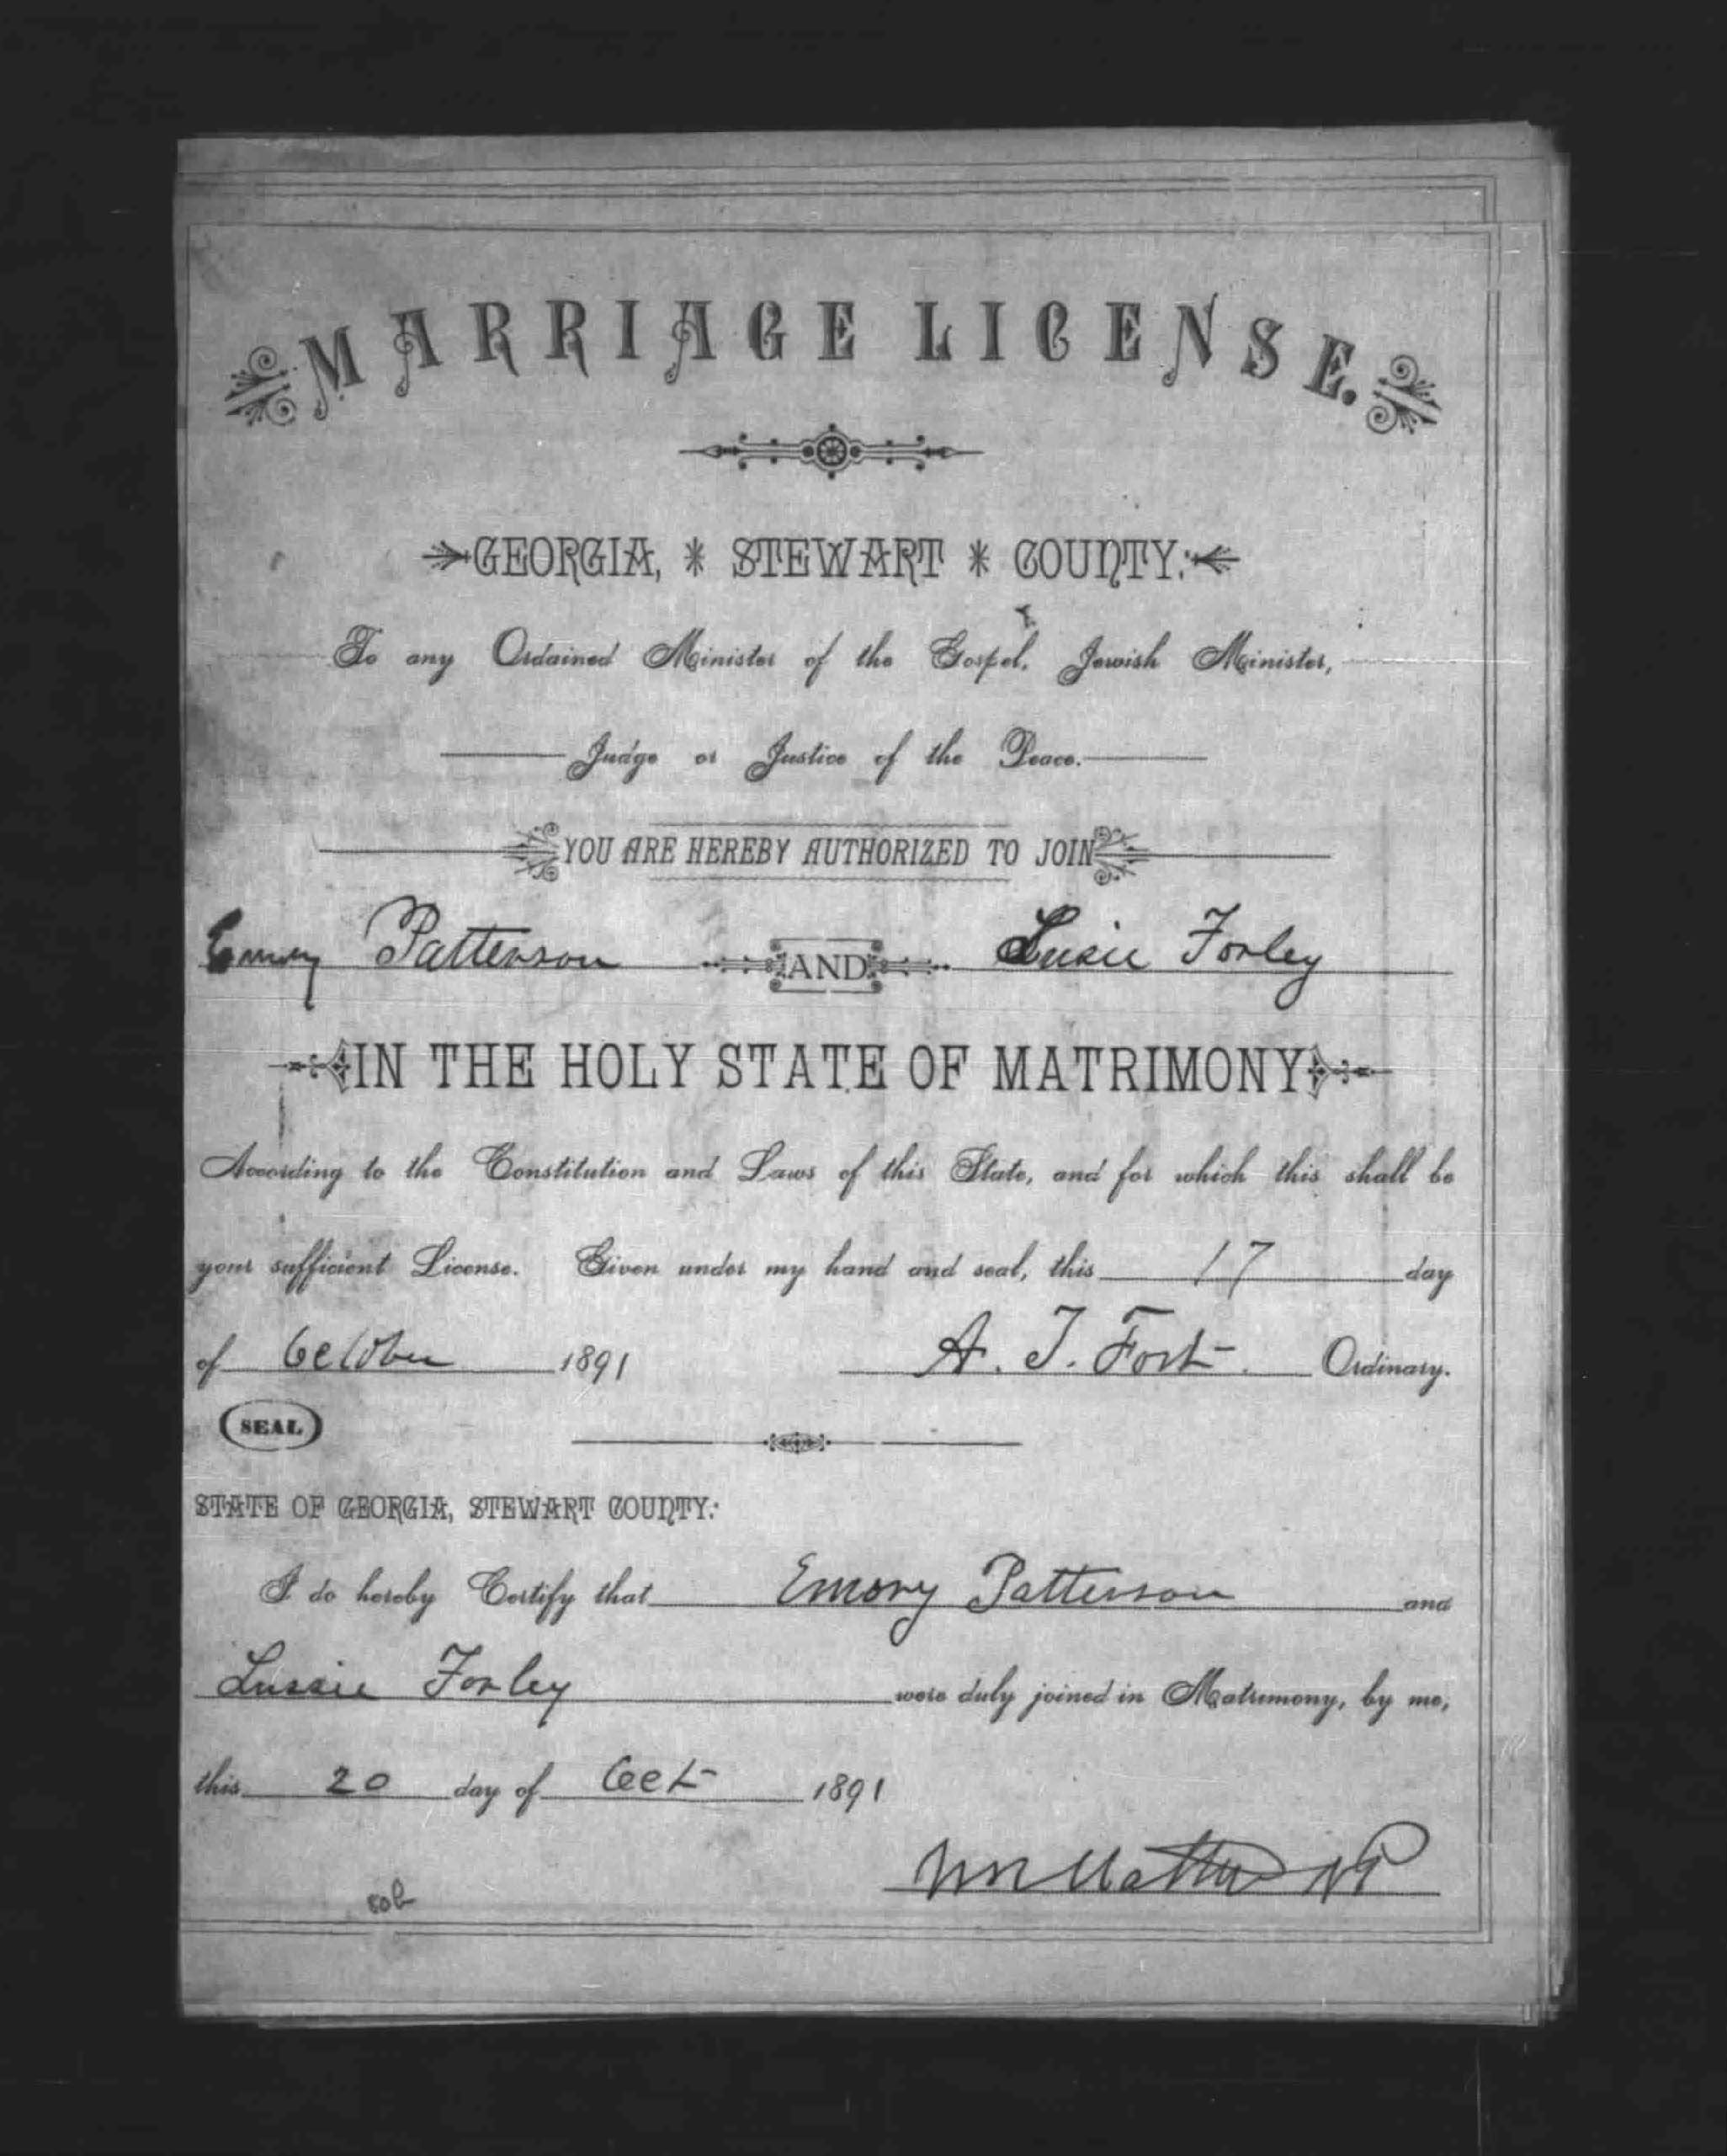 MARRIAGE LICENSE.
GEORGIA, * STEWART * COUNTY:
To any Ordained Minister of the Gospel, Jewish Minister,
Judge or Justice of the Peace.
YOU ARE HEREBY AUTHORIZED TO JOIN
Emory Patterson AND Lusie Forley
IN THE HOLY STATE OF MATRIMONY
According to the Constitution and Laws of this State, and for which this shall be
your sufficient License. Given under my hand and seal, this 17 day
of October 1891 A. T. Fort Ordinary.
SEAL
STATE OF GEORGIA, STEWART COUNTY:
I do hereby Certify that Emory Patterson and
Lussie Forley were duly joined in Matrimony, by me,
this 20 day of Oct 1891
NP